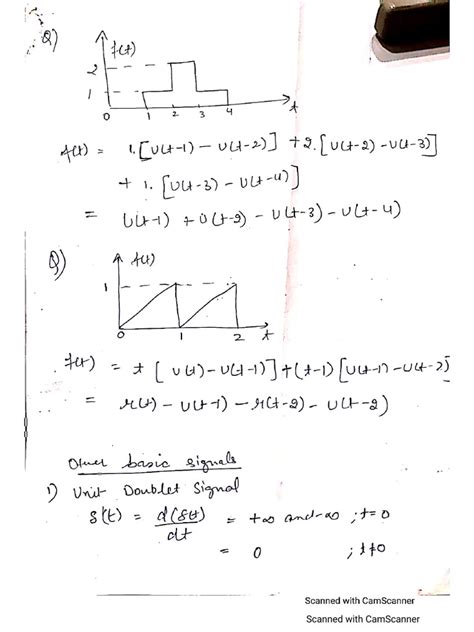 Q)
f(t)
2
1
0 1 2 3 4 t
f(t) = 1.[U(t-1) - U(t-2)] + 2.[U(t-2) - U(t-3)]
+ 1.[U(t-3) - U(t-4)]
= U(t-1) + U(t-2) - U(t-3) - U(t-4)
Q)
f(t)
1
0 1 2 t
f(t) = t[U(t) - U(t-1)] + (t-1)[U(t-1) - U(t-2)]
= r(t) - U(t-1) - r(t-2) - U(t-2)
Other basic signals
1) Unit Doublet Signal
δ(t) = d(δt)/dt = +∞ and -∞ ; t=0
= 0 ; t≠0
Scanned with CamScanner
Scanned with CamScanner